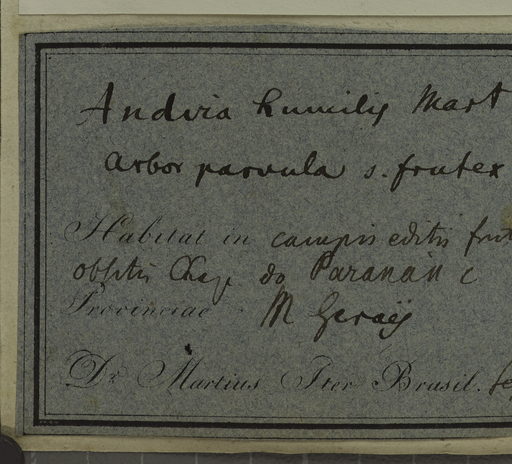 Andira humilis Mart
Arbor parvula s. frutex
Habitat in campis editis frut
obsitis Chap. do Paranán
Provinciae M Geraës
Dr. Martius Iter Brasil.